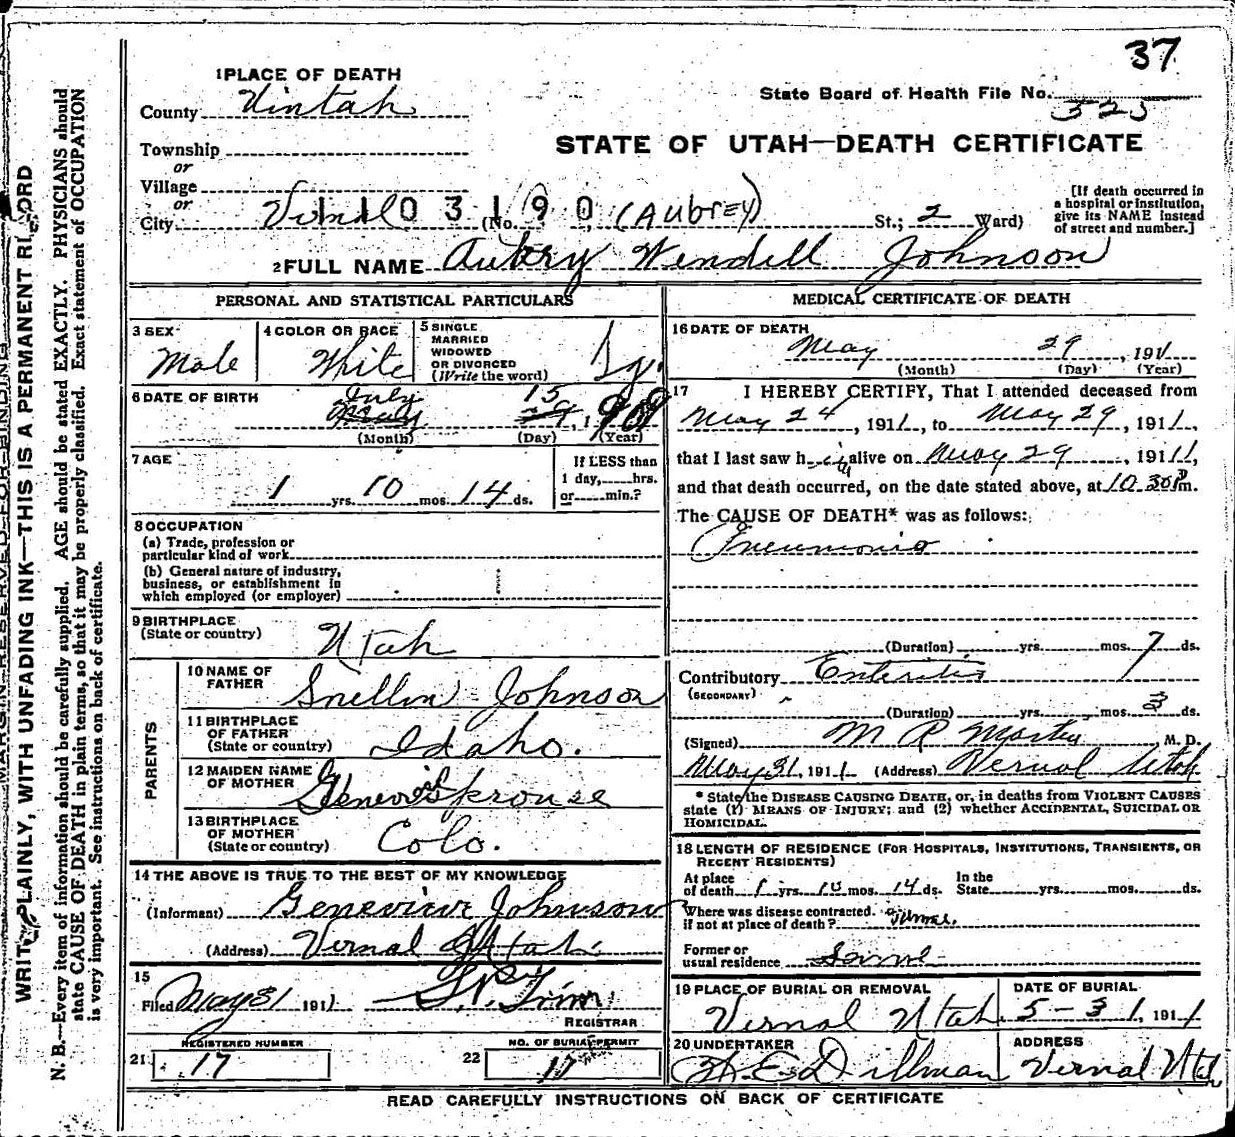 37
1 PLACE OF DEATH
County Uintah
State Board of Health File No.
525
STATE OF UTAH—DEATH CERTIFICATE
Township
or
Village
or
City Vernal (No. (Aubrey) St.; 2 Ward)
1103190
[If death occurred in
a hospital or institution,
give its NAME instead
of street and number.]
2 FULL NAME Aubry Wendell Johnson
PERSONAL AND STATISTICAL PARTICULARS
3 SEX
Male
4 COLOR OR RACE
White
5 SINGLE
MARRIED
WIDOWED
OR DIVORCED
(Write the word)
6 DATE OF BIRTH
July 15, 1909
(Month) (Day) (Year)
7 AGE
1 yrs. 10 mos. 14 ds.
If LESS than
1 day, hrs.
or min.?
8 OCCUPATION
(a) Trade, profession or
particular kind of work
(b) General nature of industry,
business, or establishment in
which employed (or employer)
9 BIRTHPLACE
(State or country)
Utah
PARENTS
10 NAME OF
FATHER
Snellin Johnson
11 BIRTHPLACE
OF FATHER
(State or country)
Idaho.
12 MAIDEN NAME
OF MOTHER
13 BIRTHPLACE
OF MOTHER
(State or country)
Colo.
14 THE ABOVE IS TRUE TO THE BEST OF MY KNOWLEDGE
(Informant) Genevieve Johnson
(Address) Vernal Utah.
15
Filed May 31 1911
REGISTRAR
REGISTERED NUMBER
21 17
NO. OF BURIAL PERMIT
22 17
MEDICAL CERTIFICATE OF DEATH
16 DATE OF DEATH
May 29, 1911
(Month) (Day) (Year)
17 I HEREBY CERTIFY, That I attended deceased from
May 24, 1911, to May 29, 1911,
that I last saw him alive on May 29, 1911,
and that death occurred, on the date stated above, at 10 30 P m.
The CAUSE OF DEATH* was as follows:
Pneumonia
(Duration) yrs. mos. 7 ds.
Contributory Enteritis
(SECONDARY)
(Duration) yrs. mos. 3 ds.
(Signed) M. D.
May 31, 1911 (Address) Vernal Utah
* State the DISEASE CAUSING DEATH, or, in deaths from VIOLENT CAUSES
state (1) MEANS OF INJURY; and (2) whether ACCIDENTAL, SUICIDAL OR
HOMICIDAL.
18 LENGTH OF RESIDENCE (FOR HOSPITALS, INSTITUTIONS, TRANSIENTS, OR
RECENT RESIDENTS)
At place
of death 1 yrs. 10 mos. 14 ds.
In the
State yrs. mos. ds.
Where was disease contracted.
if not at place of death?
Former or
usual residence Same
19 PLACE OF BURIAL OR REMOVAL
Vernal Utah.
DATE OF BURIAL
5-31, 1911
20 UNDERTAKER
Dillman
ADDRESS
Vernal Utah
READ CAREFULLY INSTRUCTIONS ON BACK OF CERTIFICATE
MARGIN RESERVED FOR BINDING
WRITE PLAINLY, WITH UNFADING INK—THIS IS A PERMANENT RECORD
N. B.—Every item of information should be carefully supplied. AGE should be stated EXACTLY. PHYSICIANS should
state CAUSE OF DEATH in plain terms, so that it may be properly classified. Exact statement of OCCUPATION
is very important. See instructions on back of certificate.